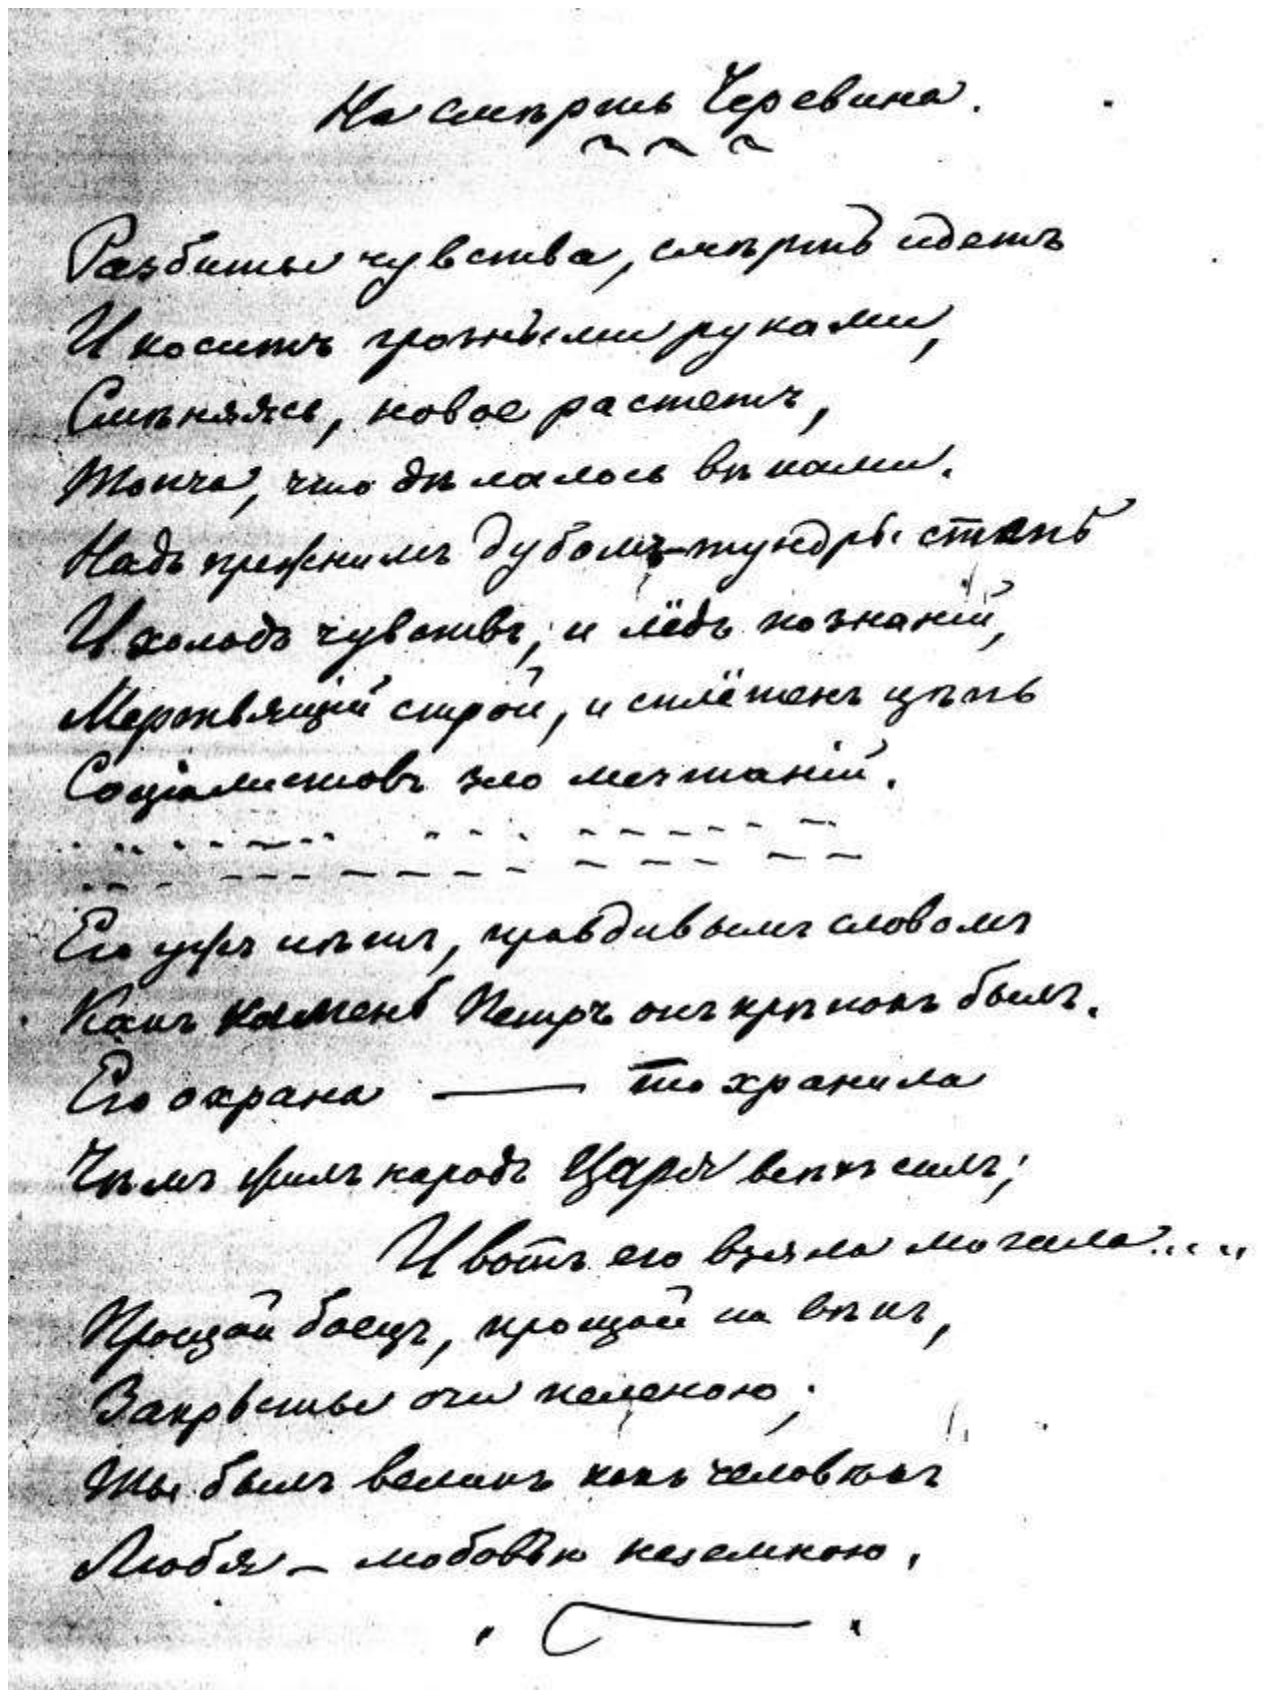 На смѣрть Черевина.
Разбиты чувства, смѣрть идетъ
И коситъ грозными руками,
Смѣняясь, новое растетъ,
Топча, что дѣлалось вѣками.
Надъ прежнимъ дубомъ-тундры степь
И холодъ чувствъ, и лёдъ познаній,
Мертвящій строй, и сплётенъ цѣпь
Соціалистовъ зло мечтаній.
Его ужъ нѣтъ, правдивымъ словомъ
Какъ камень Петръ онъ крѣпокъ былъ.
Его охрана — то хранила
Чѣмъ жилъ народъ Царя всѣхъ силъ;
И вотъ его взяла могила.....
Прощай боецъ, прощай на вѣкъ,
Закрыты очи пеленою;
Ты былъ великъ какъ человѣкъ
Любя – любовью неземною.